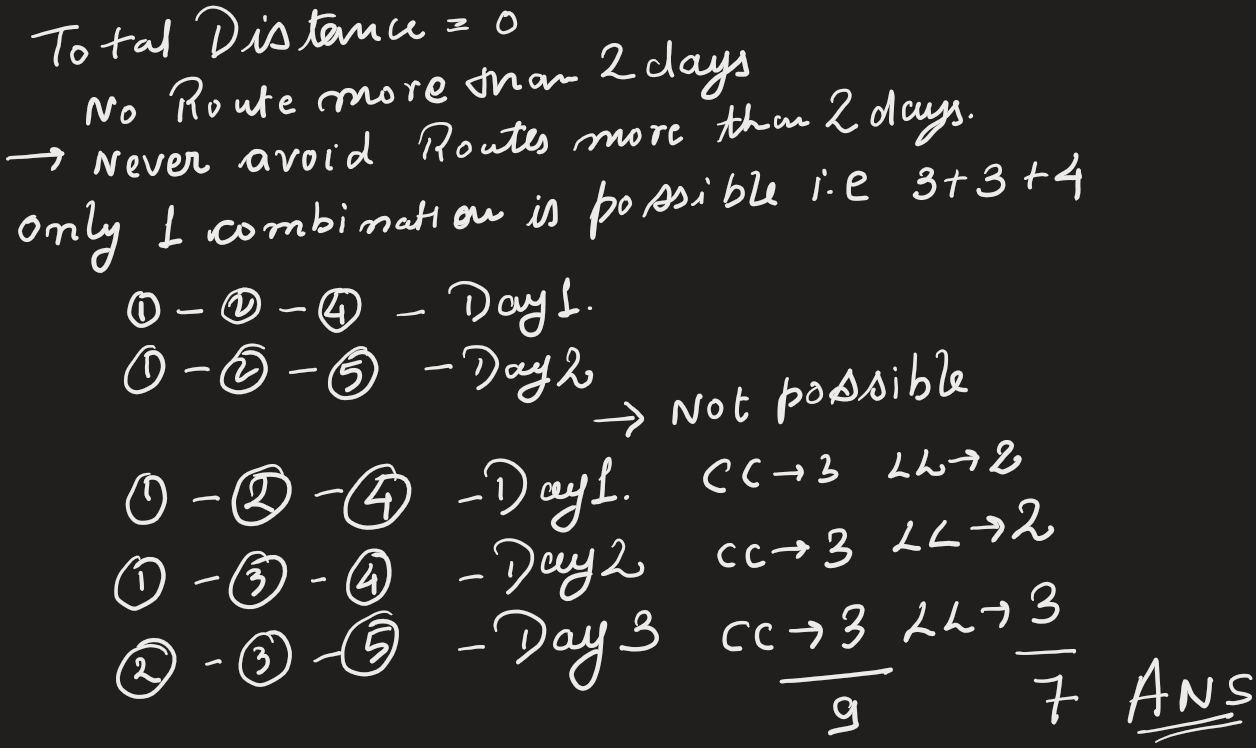 Total Distance = 0
No Route more than 2 days
→ Never avoid Routes more than 2 days.
only 1 combination is possible i.e 3+3+4
① - ② - ④ - Day 1.
① - ② - ⑤ - Day 2
→ Not possible
① - ② - ④ - Day 1. CC → 3 LL → 2
① - ③ - ④ - Day 2 CC → 3 LL → 2
② - ③ - ⑤ - Day 3 CC → 3 LL → 3
9 7 Ans